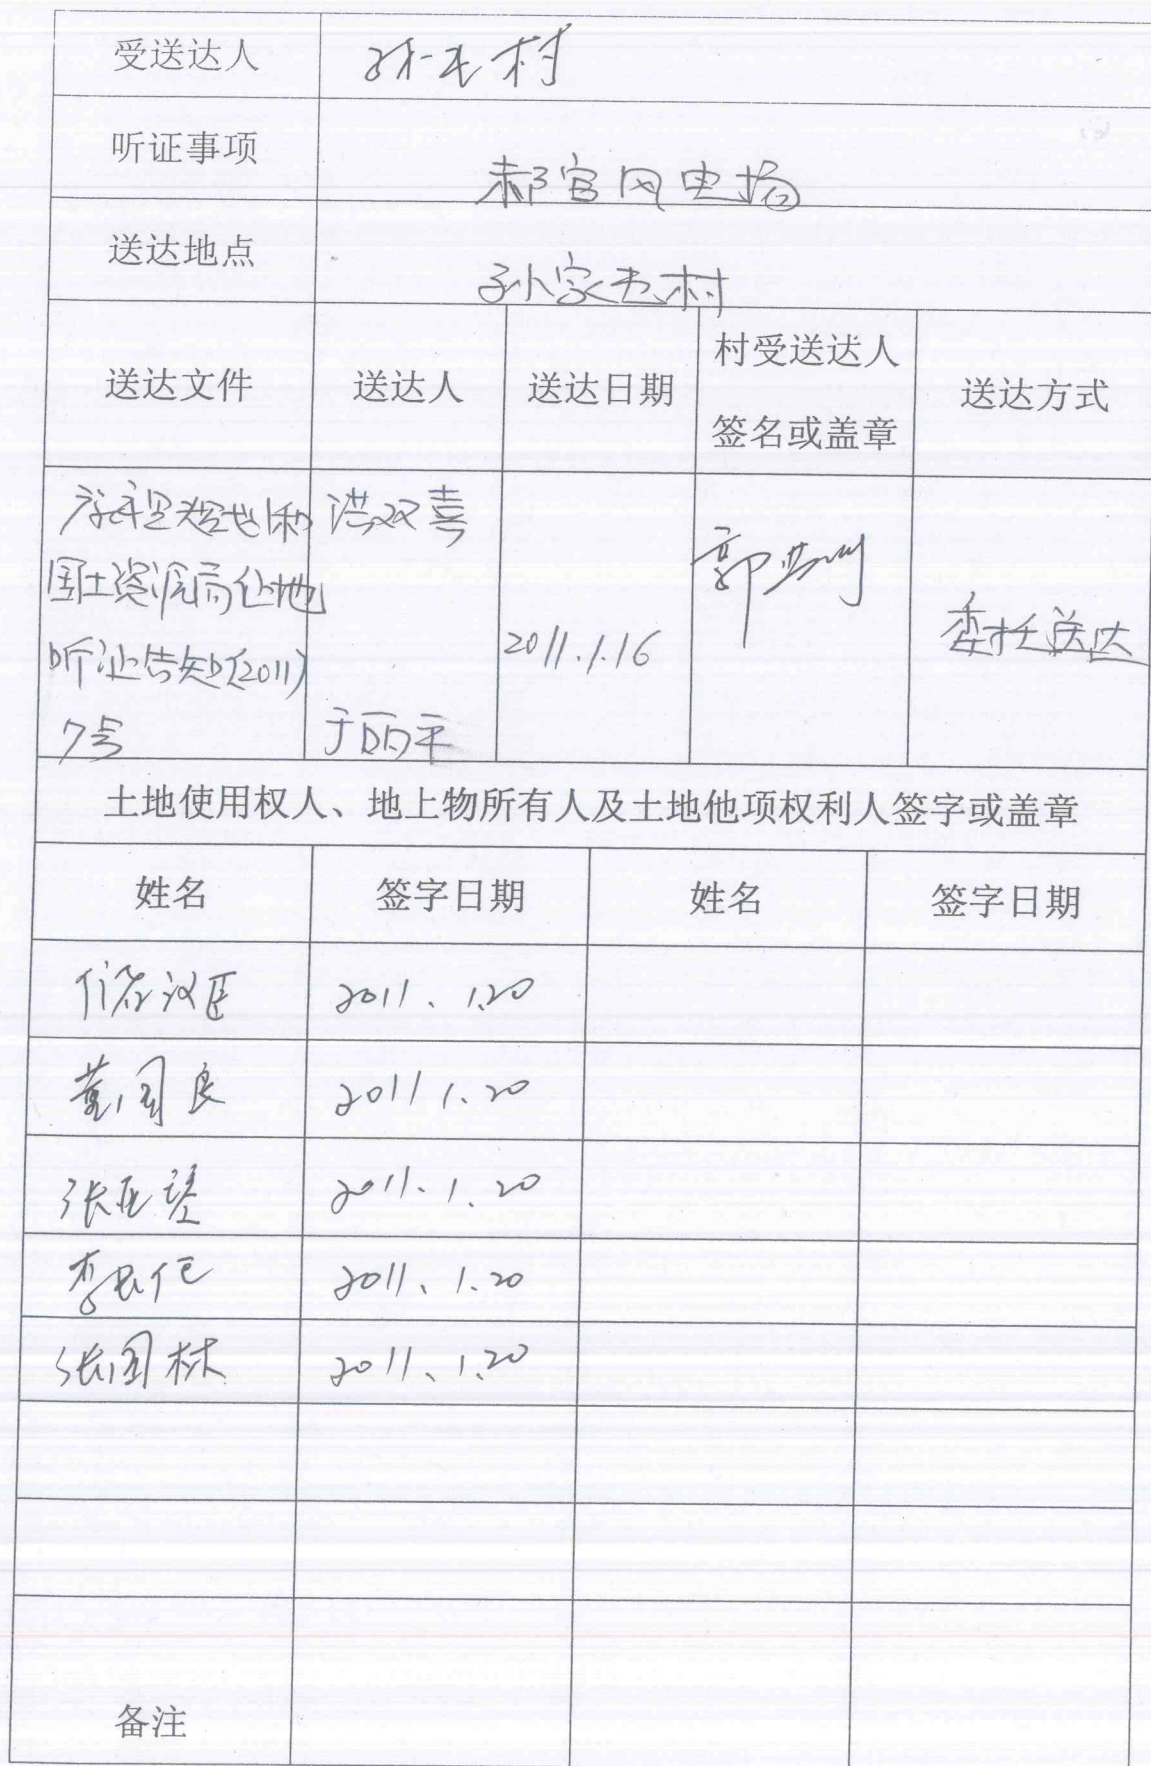 受送达人
村
听证事项
郝官风电场
送达地点
孙家 村
送达文件 送达人 送达日期 村受送达人 签名或盖章 送达方式
洪双喜
国土资源局 地
听证告知(2011)
7号
于丽平
2011.1.16
郭
委托送达
土地使用权人、地上物所有人及土地他项权利人签字或盖章
姓名 签字日期 姓名 签字日期
汉臣 2011.1.20
董国良 2011 1.20
张 2011.1.20
李 2011.1.20
张国林 2011.1.20
备注